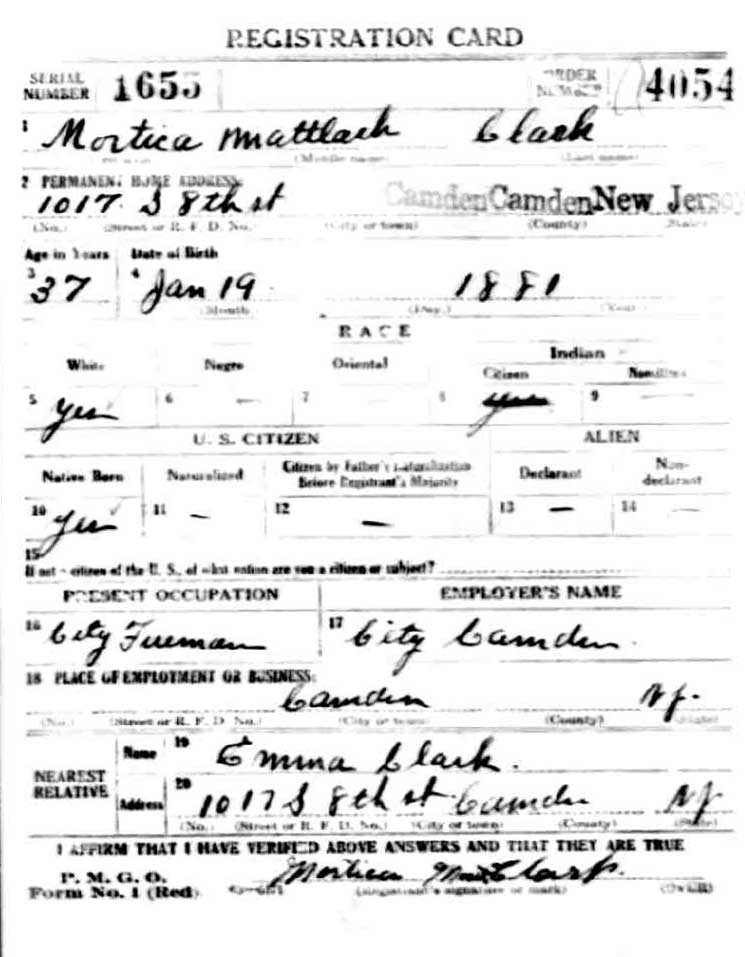 REGISTRATION CARD
SERIAL NUMBER 1655 ORDER NUMBER 4054
1 Mortica Mattlack Clark
(Middle name) (Last name)
2 PERMANENT HOME ADDRESS:
1017 S 8th st Camden Camden New Jersey
(No.) (Street or R. F. D. No.) (City or town) (County) (State)
Age in Years Date of Birth
3 37 4 Jan 19 1881
(Month) (Day) (Year)
RACE
White Negro Oriental Indian
Citizen Noncitizen
5 Yes 6 — 7 8 yes 9 —
U. S. CITIZEN ALIEN
Native Born Naturalized Citizen by Father's Naturalization Before Registrant's Majority Declarant Non-declarant
10 Yes 11 — 12 — 13 — 14 —
15
If not a citizen of the U. S., of what nation are you a citizen or subject?
PRESENT OCCUPATION EMPLOYER'S NAME
16 City Fireman 17 City Camden
18 PLACE OF EMPLOYMENT OR BUSINESS:
Camden NJ.
(No.) (Street or R. F. D. No.) (City or town) (County) (State)
NEAREST RELATIVE
Name 19 Emma Clark.
Address 20 1017 S 8th st Camden NJ
(No.) (Street or R. F. D. No.) (City or town) (County) (State)
I AFFIRM THAT I HAVE VERIFIED ABOVE ANSWERS AND THAT THEY ARE TRUE
P. M. G. O.
Form No. 1 (Red) Mortica M Clark
(Registrant's signature or mark) (OVER)